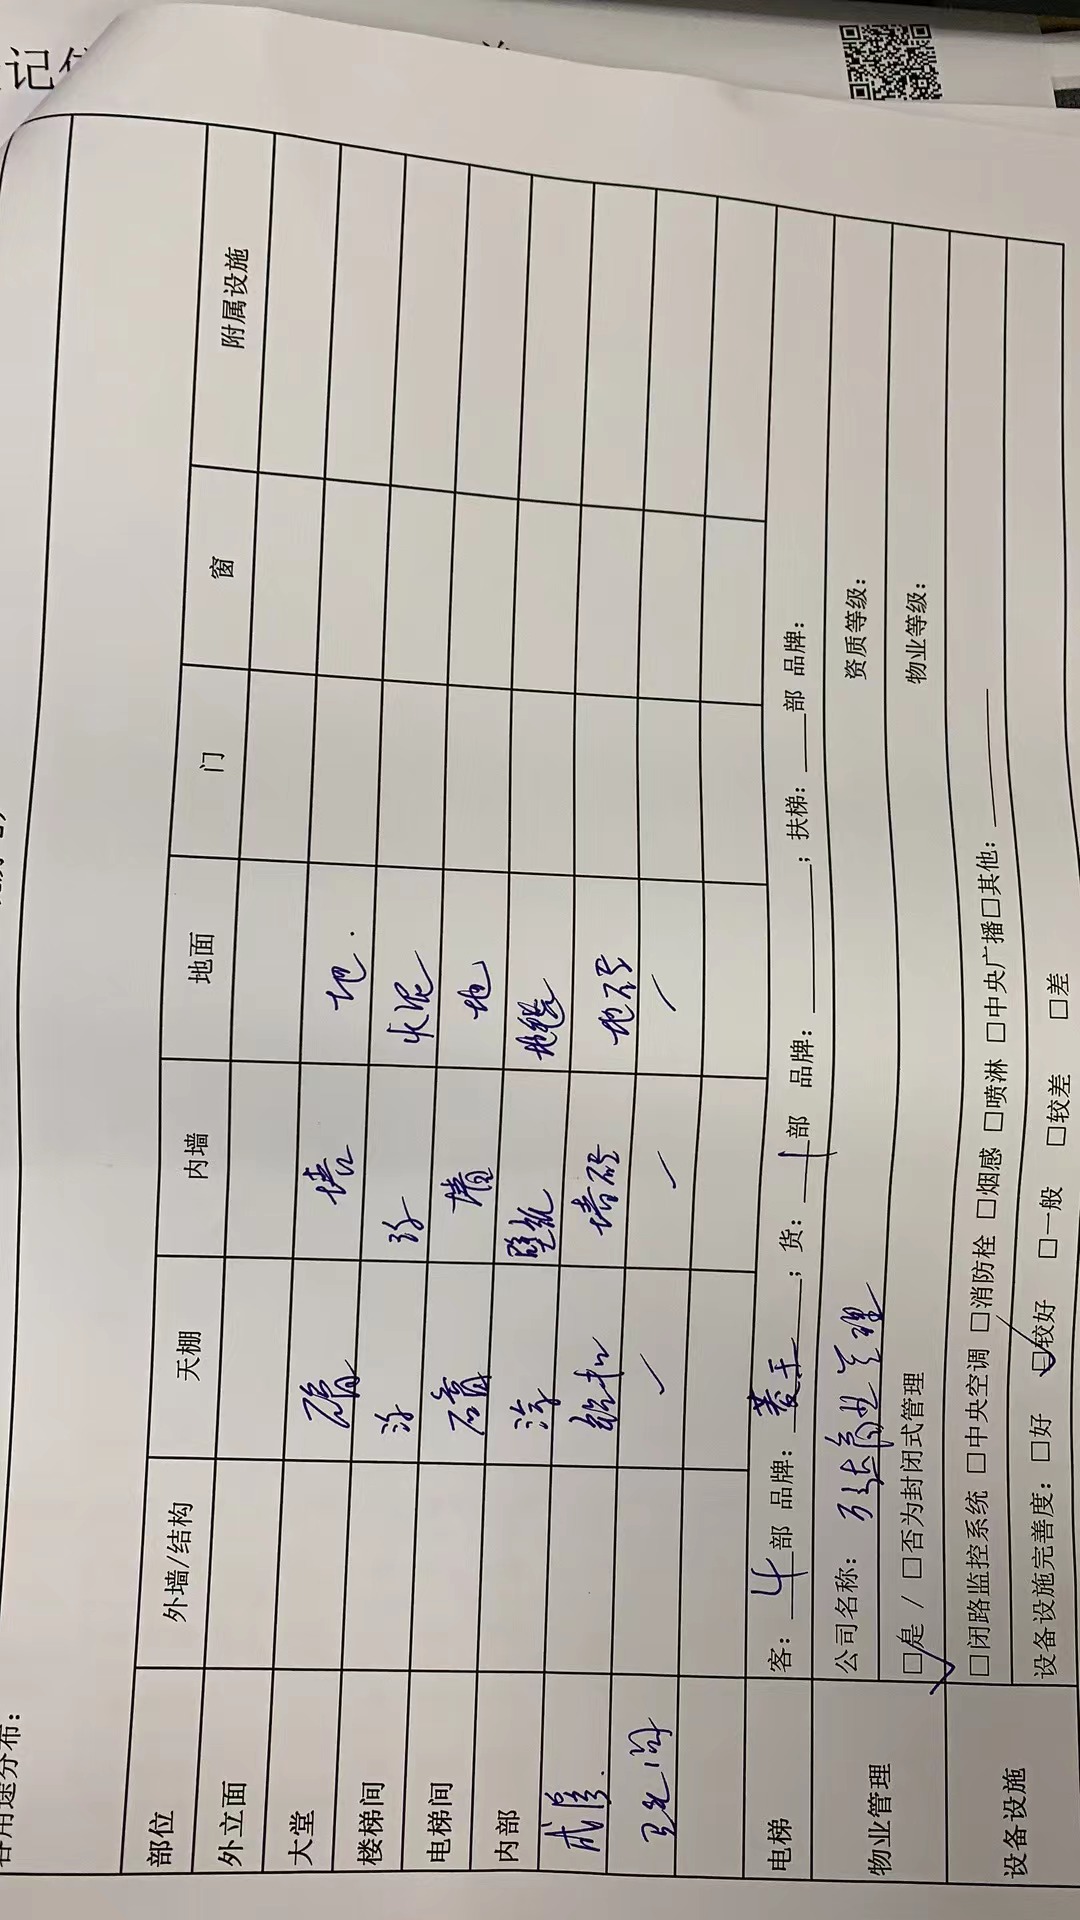 记
各用途分布：
部位 外墙/结构 天棚 内墙 地面 门 窗 附属设施
外立面
大堂 石膏 墙 地.
楼梯间 涂 涂 水泥
电梯间 石膏 墙 地
内部 涂 壁纸 地毯
铝扣 墙砖 地砖
卫生间 ✓ ✓ ✓
电梯 客：4部 品牌：菱王；货：1部 品牌：；扶梯：部 品牌：
物业管理 公司名称： 资质等级：
☑是 / □否为封闭式管理 物业等级：
设备设施 □闭路监控系统 □中央空调 □消防栓 □烟感 □喷淋 □中央广播□其他：
设备设施完善度：□好 ☑较好 □一般 □较差 □差